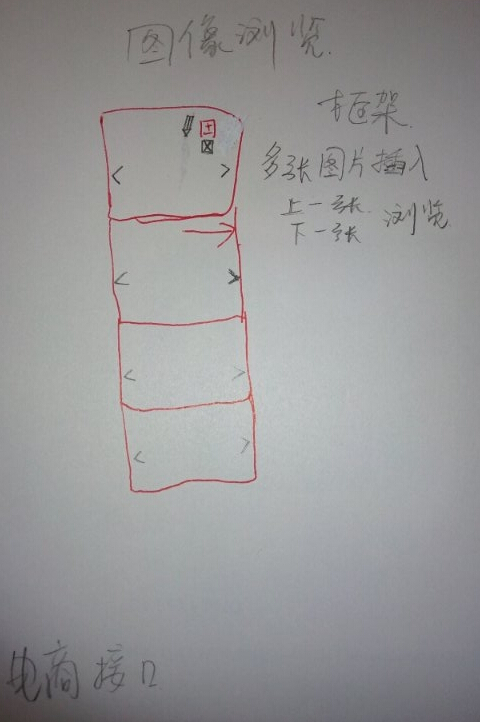 图像浏览
框架
多张图片插入
上一张
下一张 浏览
电商接口